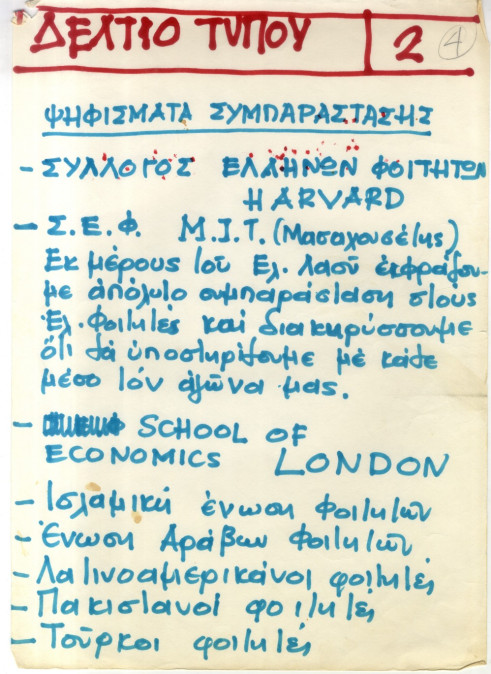 ΔΕΛΤΙΟ ΤΥΠΟΥ 2 4
ΨΗΦΙΣΜΑΤΑ ΣΥΜΠΑΡΑΣΤΑΣΗΣ
- ΣΥΛΛΟΓΟΣ ΕΛΛΗΝΩΝ ΦΟΙΤΗΤΩΝ
HARVARD
- Σ.Ε.Φ. M.I.T. (Μασαχουσέτης)
Εκ μέρους τού Ελ. Λαού έκφράζου-
με άπόλυτο συμπαράσταση στους
Ελ. Φοιτητές καί διακηρύσσουμε
ότι θά ύποστηρίξουμε μέ κάθε
μέσο τόν αγώνα μας.
- SCHOOL OF
ECONOMICS LONDON
- Ισλαμική ένωση Φοιτητών
- Ένωση Αράβων Φοιτητών
- Λατινοαμερικάνοι φοιτητές
- Πακιστανοί φοιτητές
- Τούρκοι φοιτητές